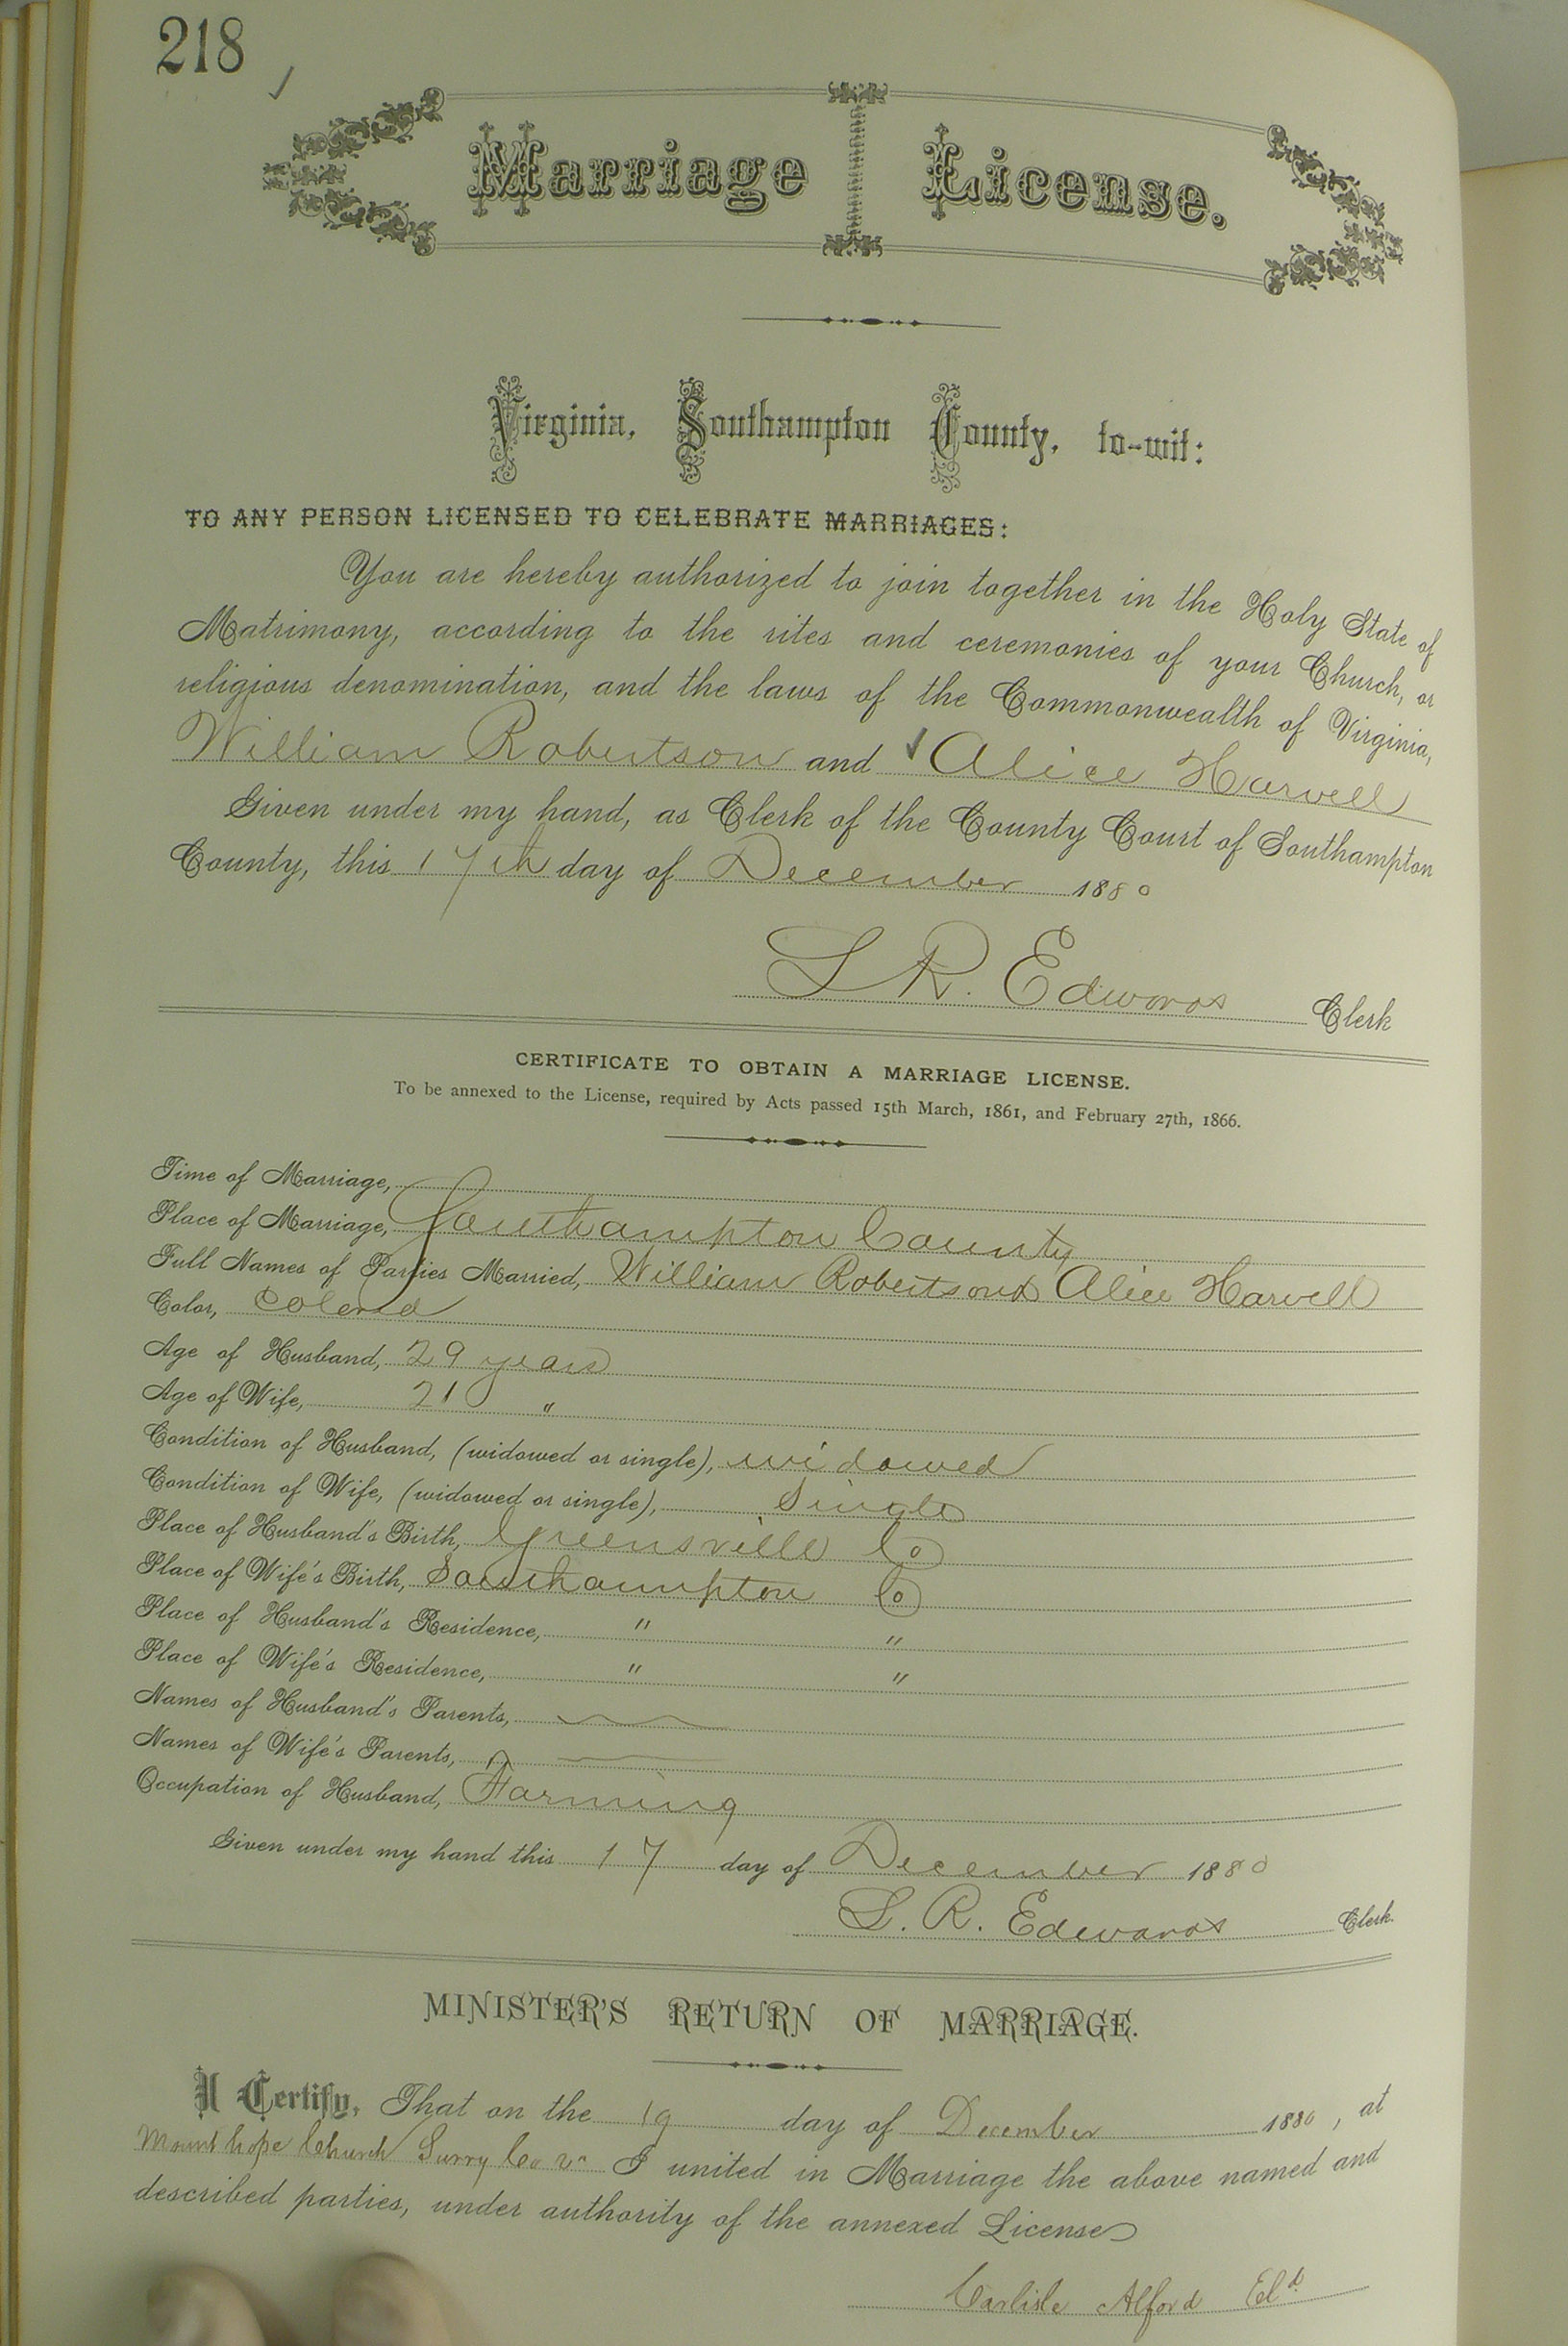 218
Marriage License.
Virginia, Southampton County, to-wit:
TO ANY PERSON LICENSED TO CELEBRATE MARRIAGES:
You are hereby authorized to join together in the Holy State of
Matrimony, according to the rites and ceremonies of your Church, or
religious denomination, and the laws of the Commonwealth of Virginia,
William Robertson and Alice Harvell
Given under my hand, as Clerk of the County Court of Southampton
County, this 17th day of December 1880
L R. Edwards Clerk
CERTIFICATE TO OBTAIN A MARRIAGE LICENSE.
To be annexed to the License, required by Acts passed 15th March, 1861, and February 27th, 1866.
Time of Marriage,
Place of Marriage, Southampton County
Full Names of Parties Married, William Robertson & Alice Harvell
Color, Colored
Age of Husband, 29 years
Age of Wife, 21 "
Condition of Husband, (widowed or single), widowed
Condition of Wife, (widowed or single), Single
Place of Husband's Birth, Greensville Co
Place of Wife's Birth, Southampton Co
Place of Husband's Residence, " "
Place of Wife's Residence, " "
Names of Husband's Parents,
Names of Wife's Parents,
Occupation of Husband, Farming
Given under my hand this 17 day of December 1880
L. R. Edwards Clerk.
MINISTER'S RETURN OF MARRIAGE.
I Certify, That on the 19 day of December 1880, at
Mount hope Church Surry Co Va I united in Marriage the above named and
described parties, under authority of the annexed License
Carlisle Alford Eld.